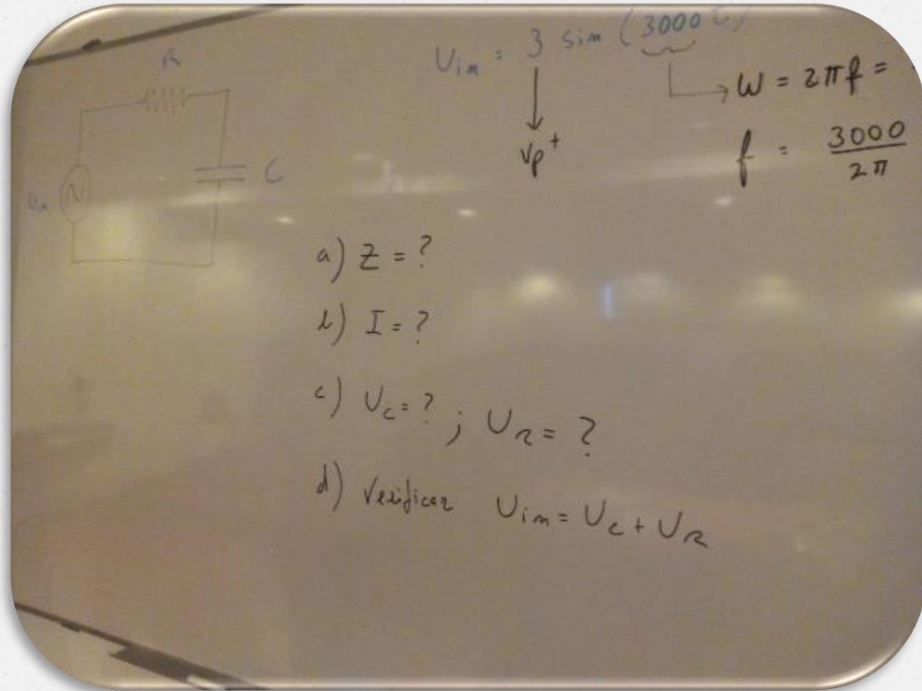 R
C
Uin = 3 sin (3000 t)
Vp+
W = 2πf =
f = 3000 / 2π
a) Z = ?
b) I = ?
c) Uc = ? ; UR = ?
d) Verificar Uin = Uc + UR